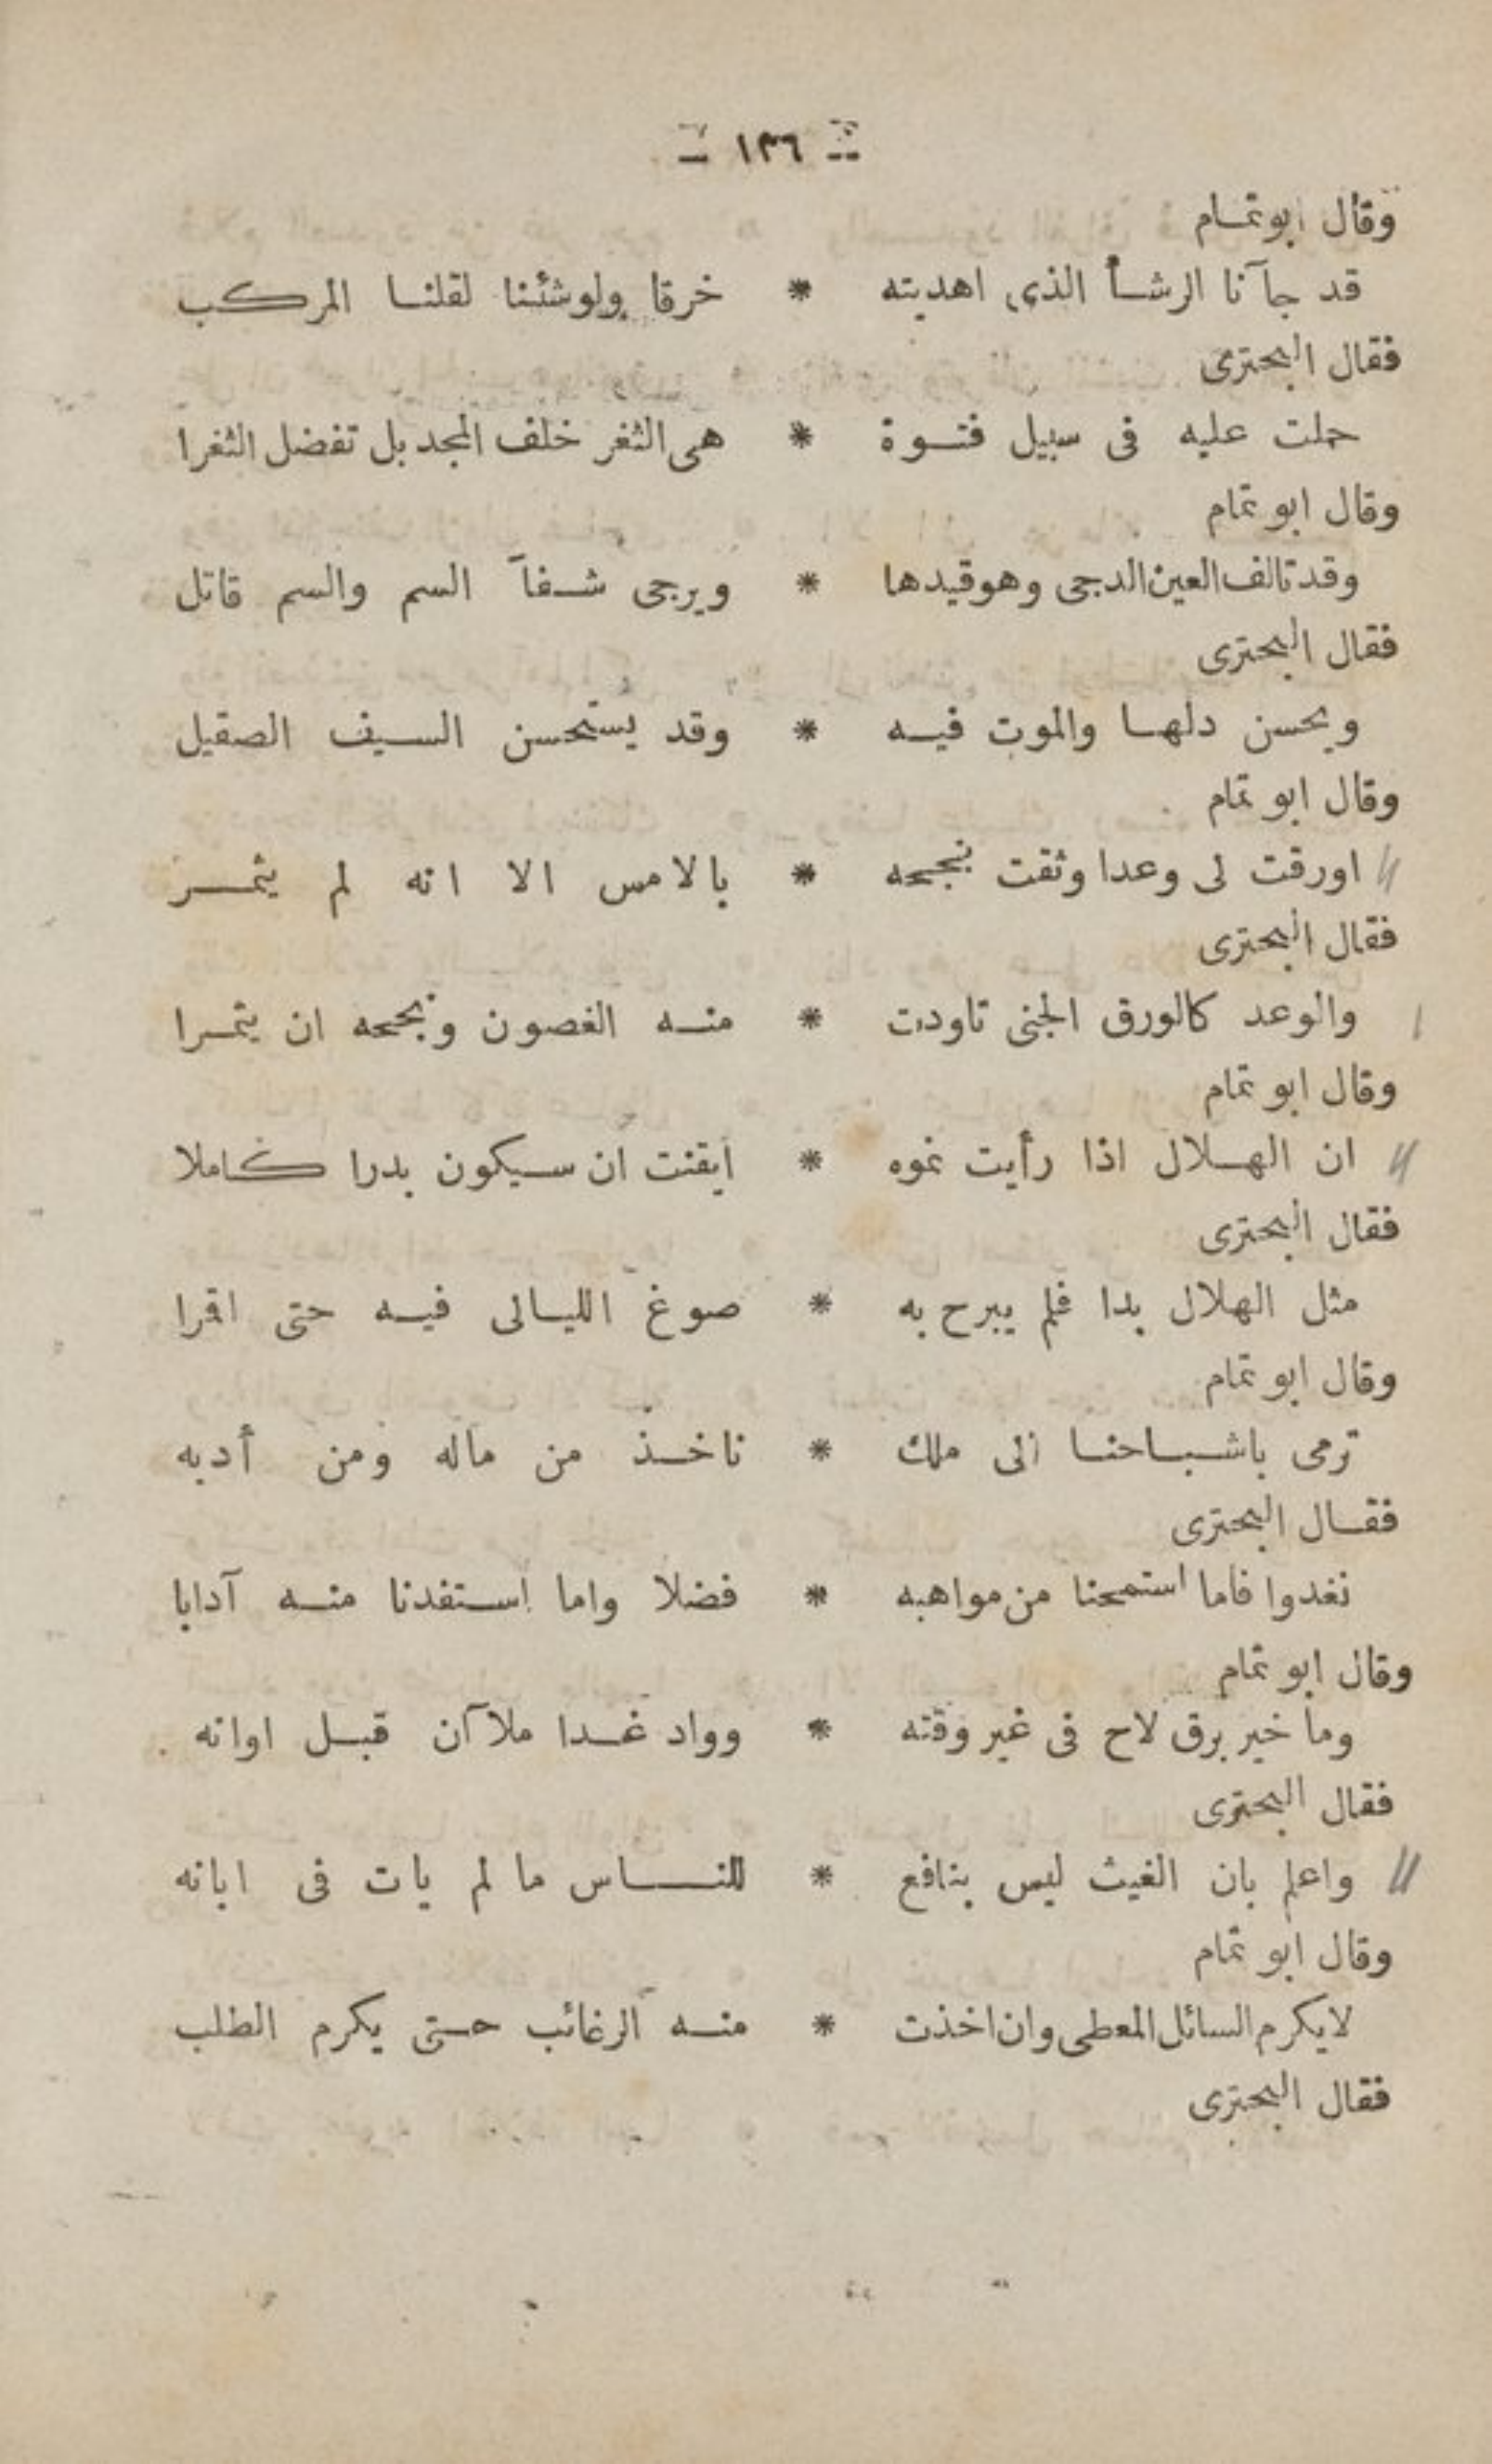 ــ ١٣٦ ــ
وقال ابوتمام
قد جآنا الرشأ الذى اهديته * خرقا ولوشئنا لقلنا المركب
فقال البحترى
حملت عليه فى سبيل فتوة * هى الثغر خلف المجد بل تفضل الثغرا
وقال ابو تمام
وقد تالف العين الدجى وهو قيدها * ويرجى شفآ السم والسم قاتل
فقال البحترى
ويحسن دلها والموت فيه * وقد يستحسن السيف الصقيل
وقال ابو تمام
اورقت لى وعدا وثقت بنجحه * بالامس الا انه لم يثمر
فقال البحترى
والوعد كالورق الجنى تاودت * منه الغصون ونجحه ان يثمرا
وقال ابو تمام
ان الهلال اذا رأيت نموه * ايقنت ان سيكون بدرا كاملا
فقال البحترى
مثل الهلال بدا فلم يبرح به * صوغ الليالى فيه حتى اقمرا
وقال ابو تمام
ترمى باشباحنا الى ملك * ناخذ من ماله ومن أدبه
فقال البحترى
نغدوا فاما استمحنا من مواهبه * فضلا واما استفدنا منه آدابا
وقال ابو تمام
وما خير برق لاح فى غير وقته * وواد غدا ملاآن قبل اوانه
فقال البحترى
واعلم بان الغيث ليس بنافع * للناس ما لم يات فى ابانه
وقال ابو تمام
لايكرم السائل المعطى وان اخذت * منه الرغائب حتى يكرم الطلب
فقال البحترى